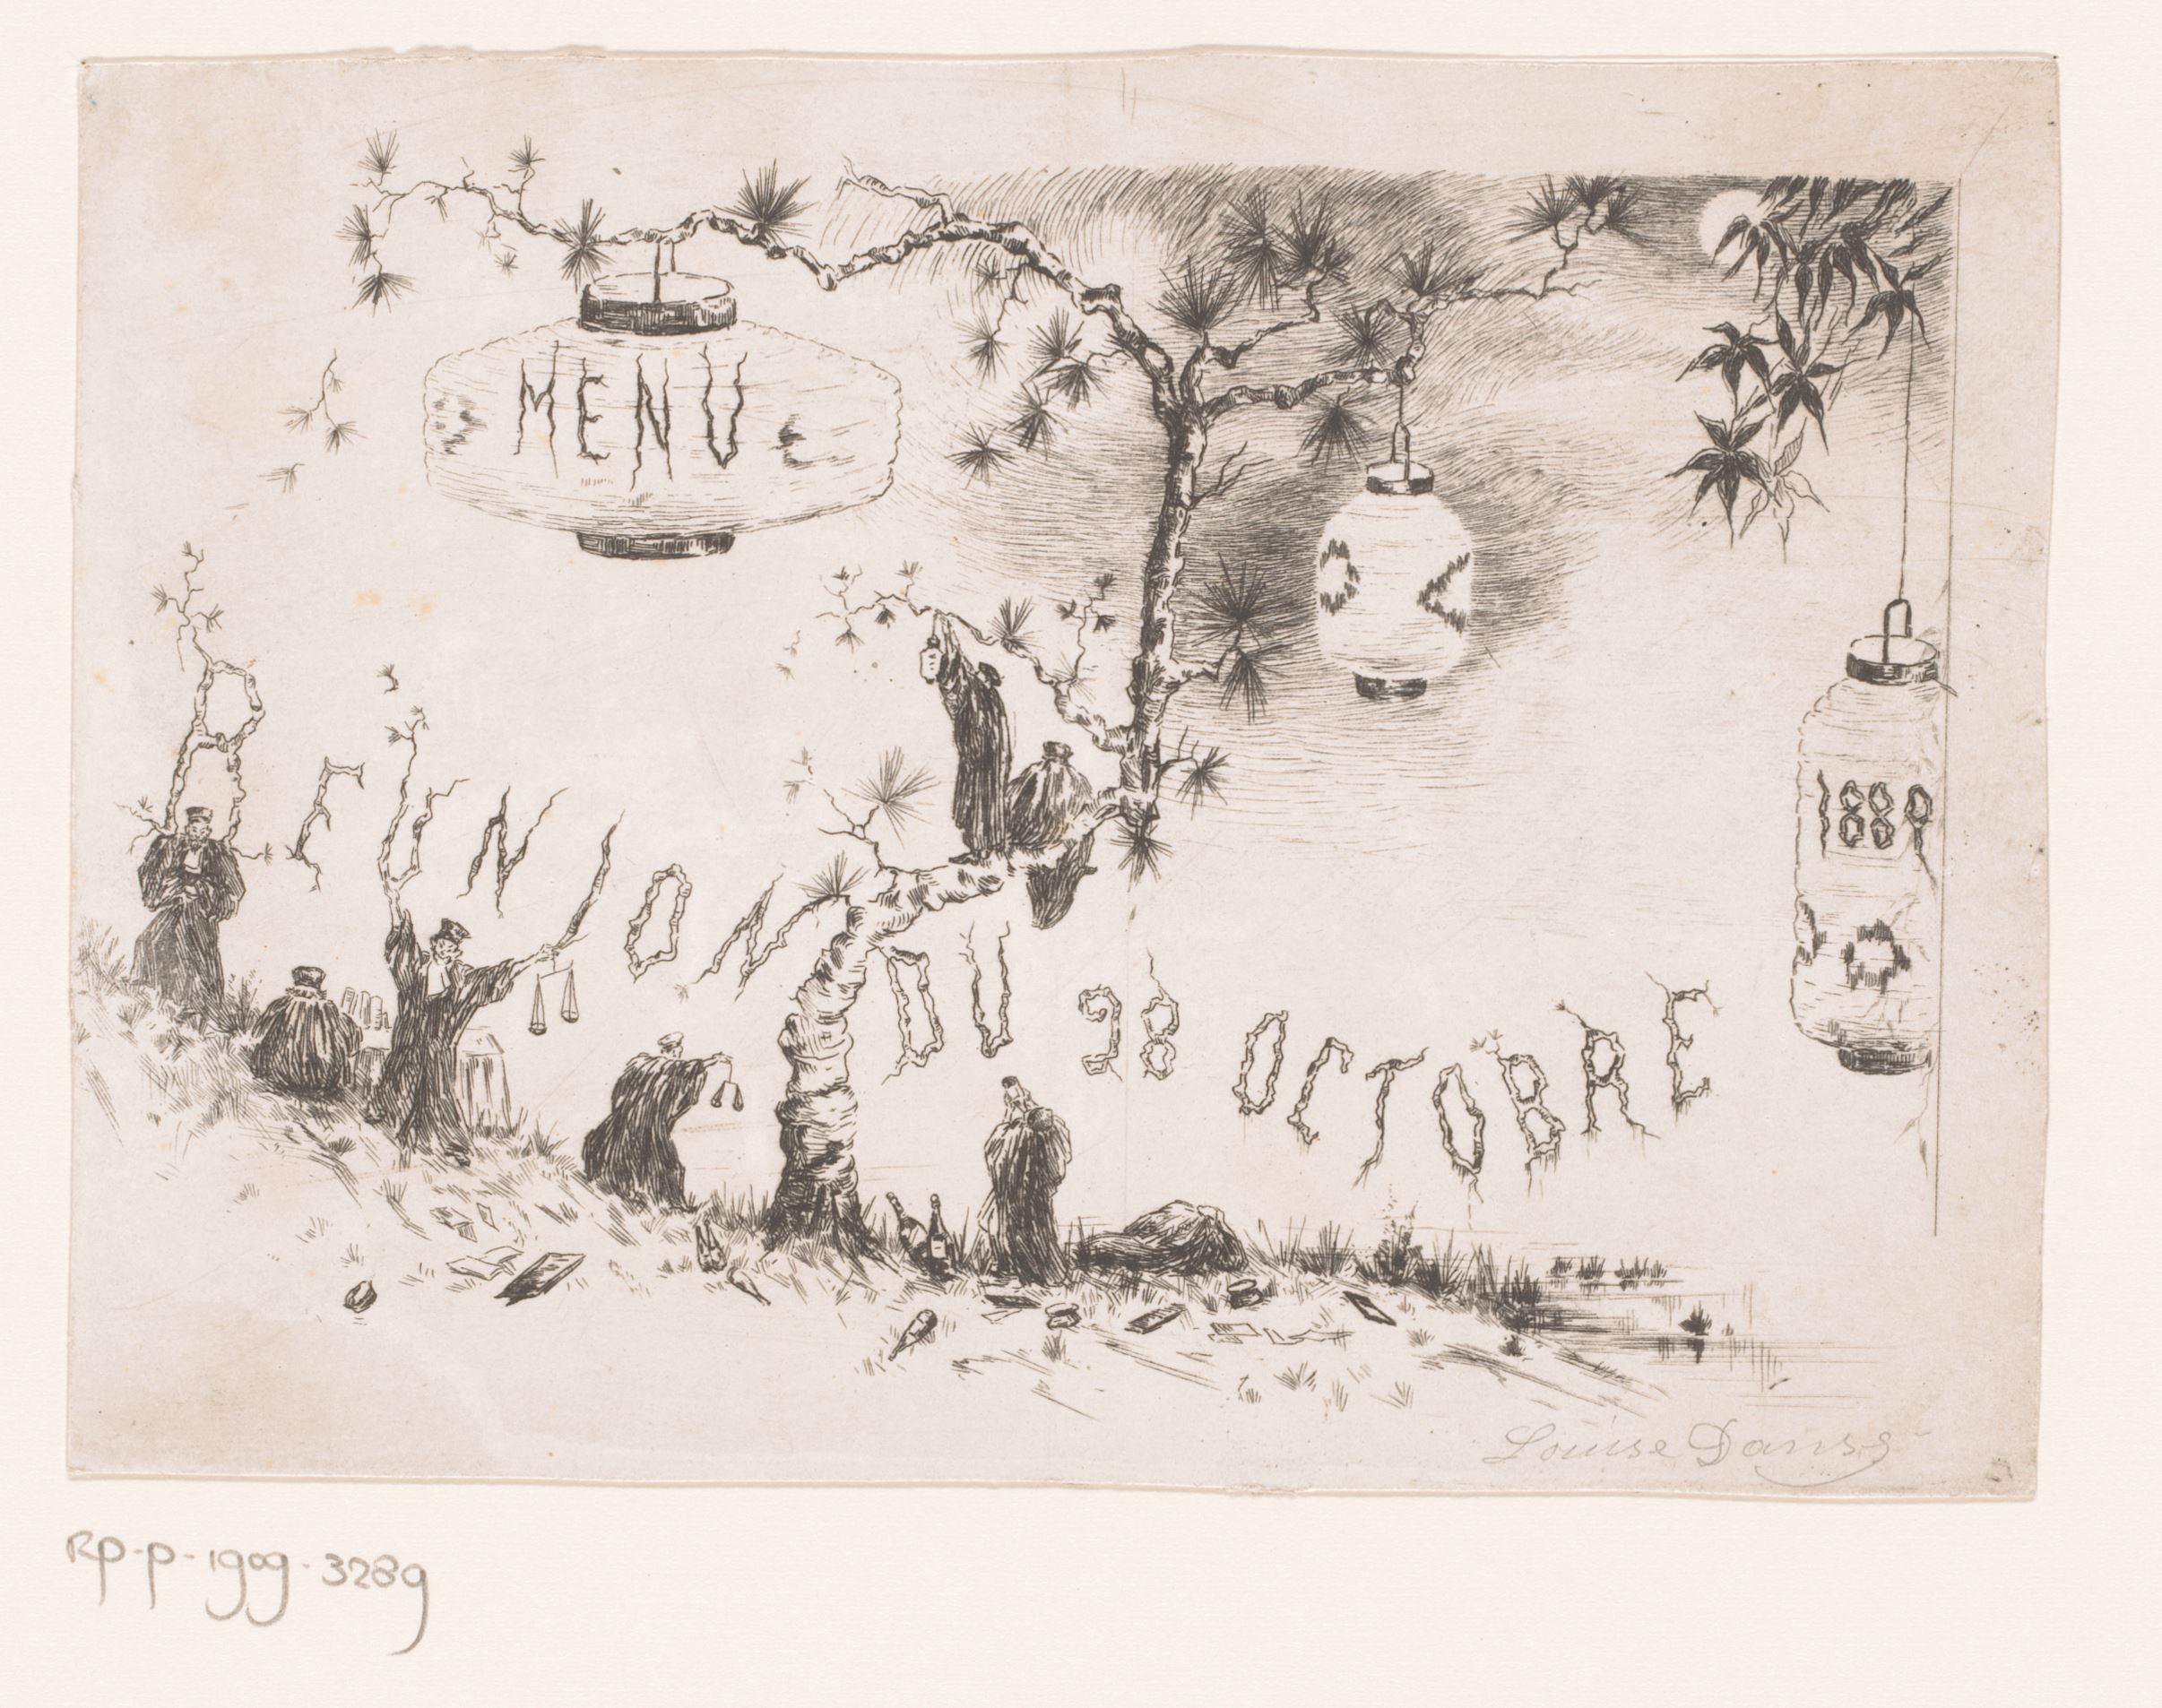 MENU
REUNION DU 28 OCTOBRE
1889
Louise Danse
RP-P-1909-3289